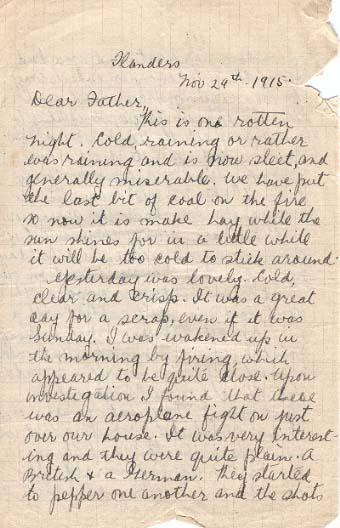 Flanders
Nov 29th 1915.
Dear Father,,
This is one rotten
night. Cold, raining or rather
was raining and is now sleet, and
generally miserable. We have put
the last bit of coal on the fire
so now it is make hay while the
sun shines for in a little while
it will be too cold to stick around.
Yesterday was lovely. Cold,
clear and crisp. It was a great
day for a scrap, even if it was
Sunday. I was wakened up in
the morning by firing, which
appeared to be quite close. Upon
investigation I found that there
was an aeroplane fight on just
over our house. It was very interest-
ing and they were quite plain. A
British & a German. They started
to pepper one another and the shots